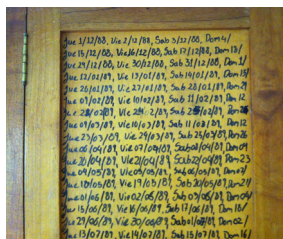 Jue 1/12/88, Vie 2/12/88, Sab 3/12/88, Dom 4/
Jue 15/12/88, Vie 16/12/88, Sab 17/12/88, Dom 18/
Jue 29/12/88, Vie 30/12/88, Sab 31/12/88, Dom 1/
Jue 12/01/89, Vie 13/01/89, Sab 14/01/89, Dom 15/
Jue 26/01/89, Vie 27/01/89, Sab 28/01/89, Dom 29
Jue 09/02/89, Vie 10/02/89, Sab 11/02/89, Dom 12
Jue /02/89, Vie 2/89, Sab /02/89, Dom 26
Jue 09/03/89, Vie 10/03/89, Sab 11/03/89, Dom 12
Jue 23/03/89, Vie 24/03/89, Sab 25/03/89, Dom 26
Jue 06/04/89, Vie 07/04/89, Sab 08/04/89, Dom
Jue 20/04/89, Vie 21/04/89, Sab 22/04/89, Dom 23
Jue 04/05/89, Vie 05/05/89, Sab 06/05/89, Dom
Jue 18/05/89, Vie 19/05/89, Sab 20/05/89, Dom 21/
Jue 01/06/89, Vie 02/06/89, Sab 03/06/89, Dom 04/
Jue 15/06/89, Vie 16/06/89, Sab 17/06/89, Dom 18/
Jue 29/06/89, Vie 30/06/89, Sab 01/07/89, Dom 02/
Jue 13/07/89, Vie 14/07/89, Sab 15/07/89, Dom 16/